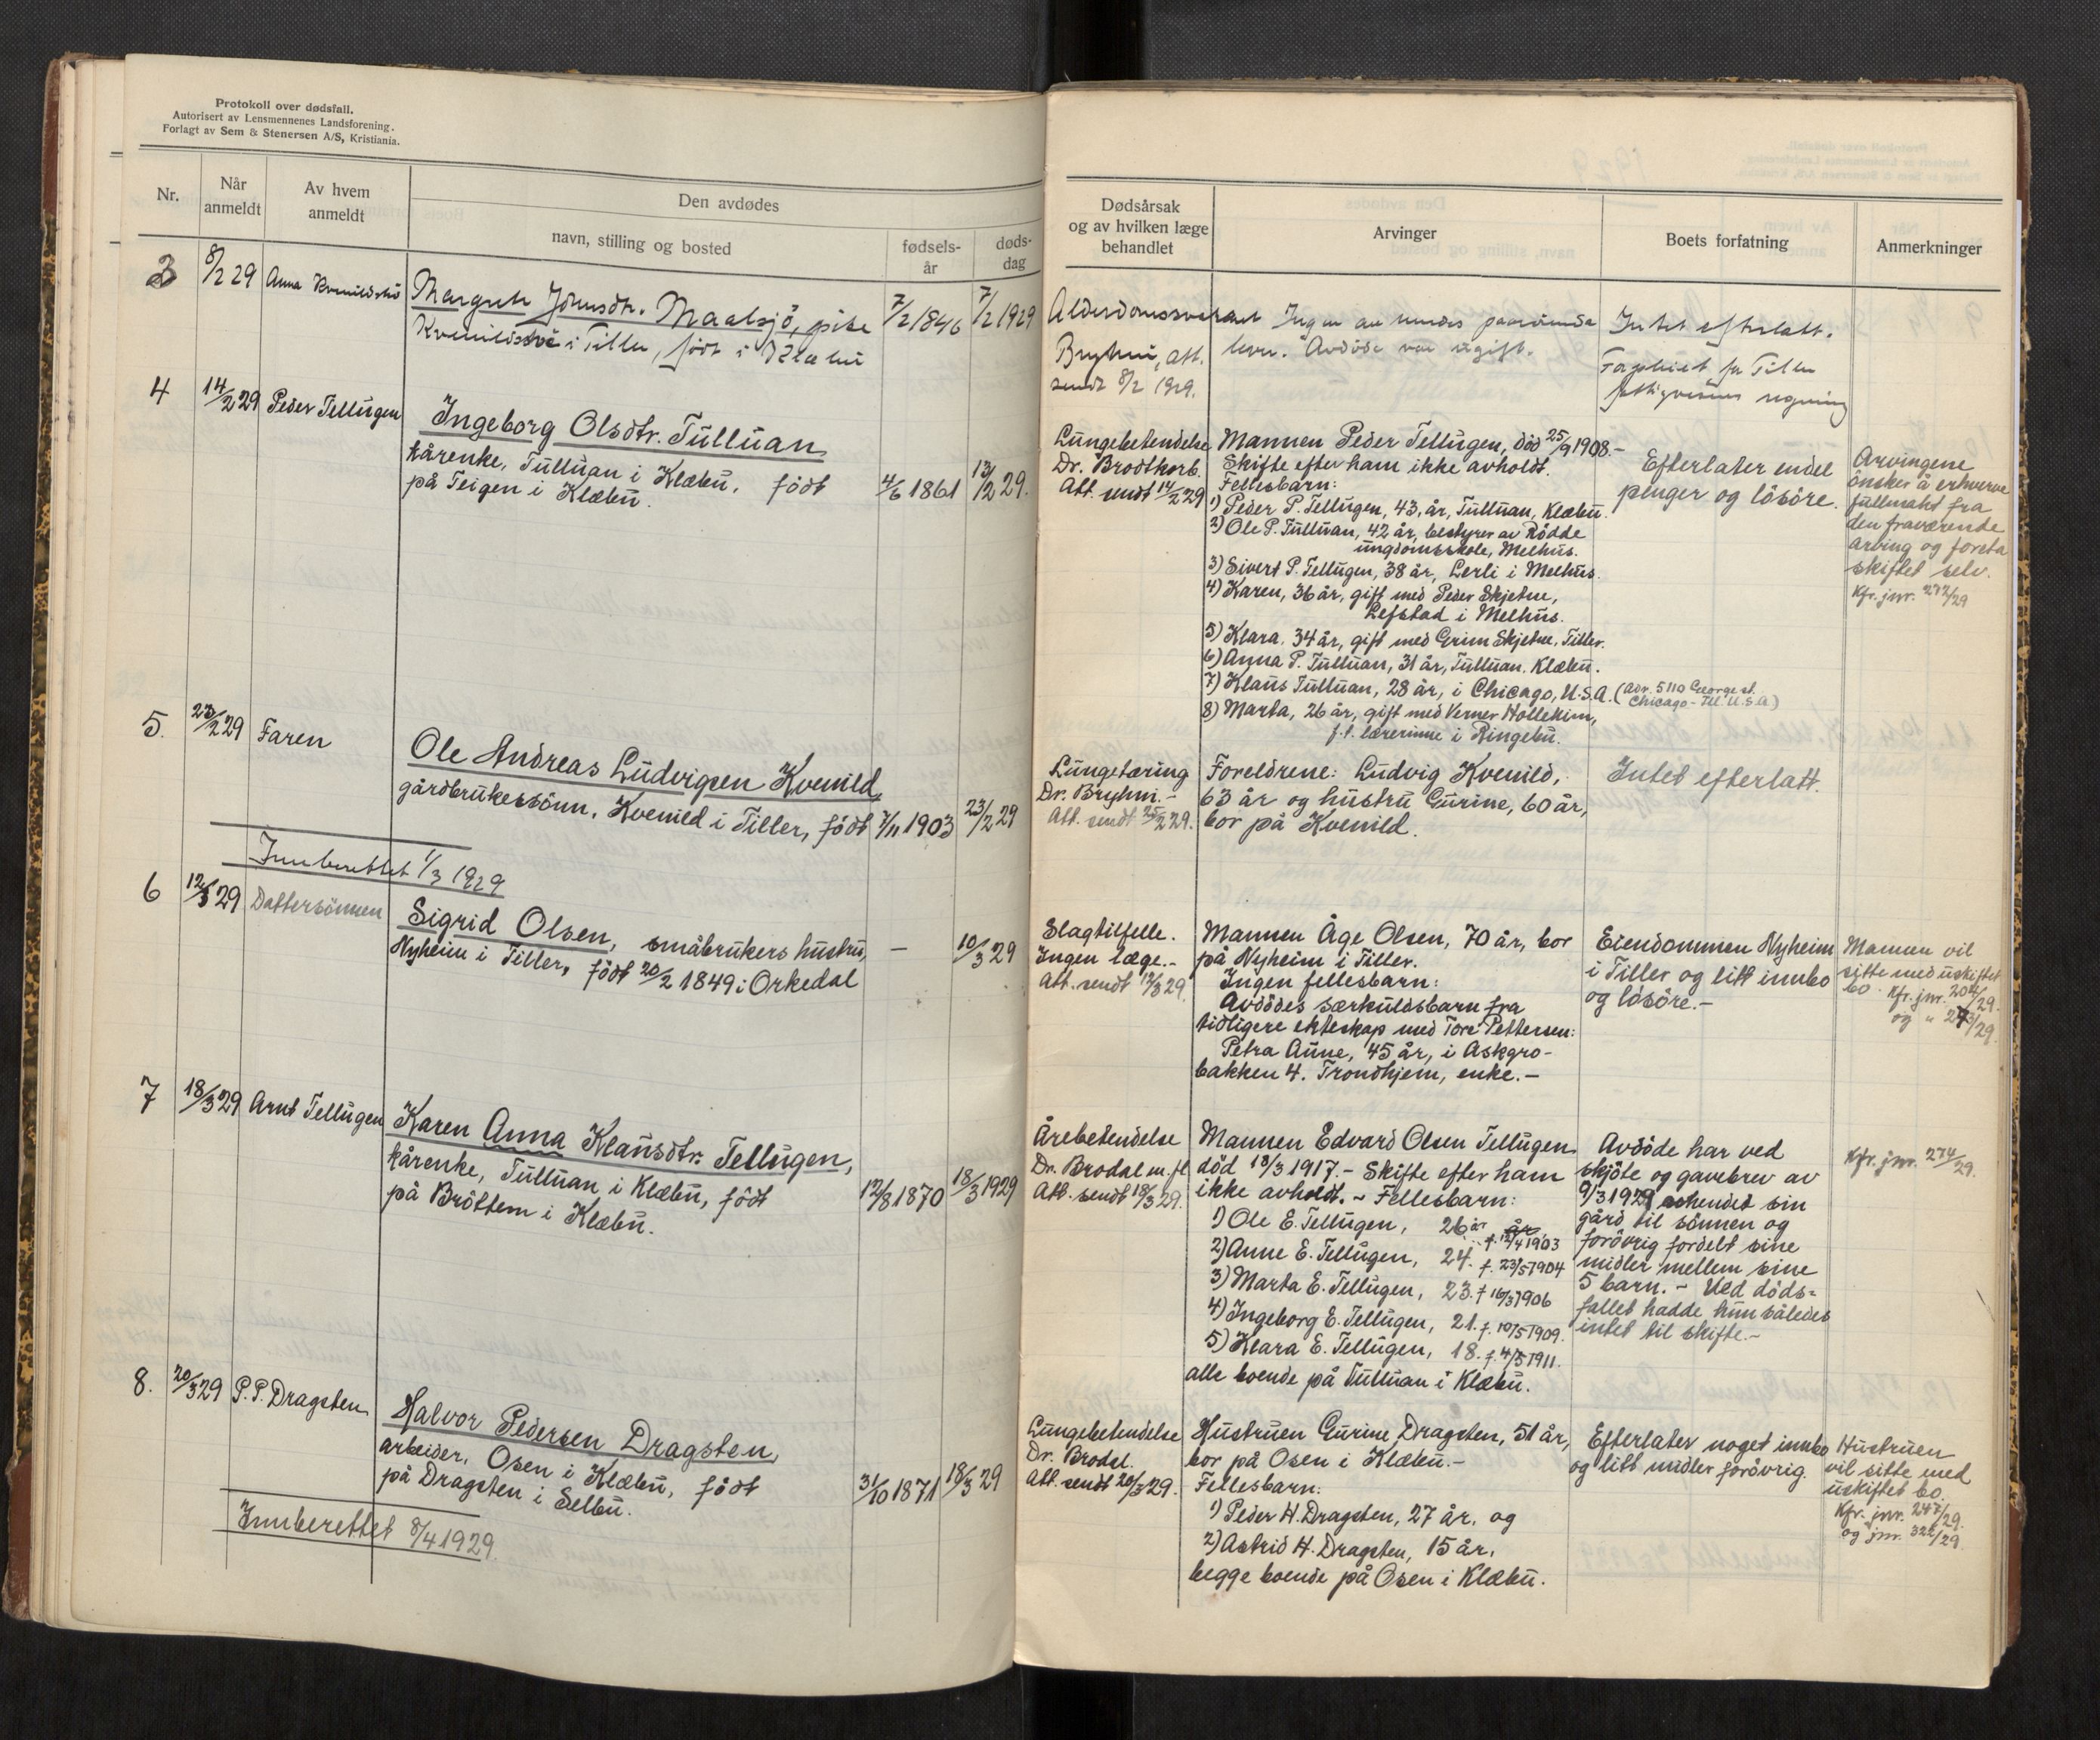 Protokoll over dødsfall.
Autorisert av Lensmennenes Landsforening.
Forlagt av Sem & Stenersen A/S, Kristiania.
Nr.
Når anmeldt
Av hvem anmeldt
Den avdødes
navn, stilling og bosted
fødsels-
år
døds-
dag
Dødsårsak
og av hvilken læge
behandlet
Arvinger
Boets forfatning
Anmerkninger
3
8/2 29
Anna
Margreth Johnsdtr. Maalsjö, pike
i Tiller, född i Klæbu
7/2 1846
7/2 1929
Alderdomssvakhet
Bryhni, att.
sendt 8/2 1929.
Ingen av hendes
lever. Avdöde var ugift.
Intet efterlatt.
for Tiller
4
14/2 29
Peder Tellugen
Ingeborg Olsdtr. Tulluan
kårenke, Tulluan i Klæbu, född
på Teigen i Klæbu.
4/6 1861
13/2 29.
Lungebetendelse
Dr. Brodtkorb.
Att. sendt 14/2 29
Mannen Peder Tellugen, död 25/9 1908.-
Skifte efter ham ikke avholdt.
Fellesbarn:
1) Peder P. Tellugen, 43, år, Tulluan, Klæbu.
2) Ole P. Tulluan, 42 år, bestyrer av Rödde
ungdomsskole, Melhus.
3) Sivert P. Tellugen, 38 år, Lerli i Melhus.
4) Karen, 36 år, gift med Peder Skjetne,
Lefstad i Melhus.
5) Klara, 34 år, gift med Grim Skjetne, Tiller.
6) Anna P. Tulluan, 31 år, Tulluan, Klæbu.
7) Klaus Tulluan, 28 år, i Chicago, U.S.A. (Adr. 5110 George st.
Chicago - Ill. U.S.A)
8) Marta, 26 år, gift med Verner Hollekim,
f.t. lærerinne i Ringebu.
Efterlater endel
penger og lösöre.
Arvingene
önsker å erhverve
fullmakt fra
den fraværende
arving og foreta
skiftet selv.
Kfr. jnr. 272/29
5.
23/2 29
Faren
Ole Andreas Ludvigsen Kvenild,
gårdbrukessönn, Kvenild i Tiller, född
7/11 1903
23/2 29
Lungetæring
Dr. Bryhni.-
Att. sendt 25/2 29.
Foreldrene: Ludvig Kvenild,
63 år og hustru Gurine, 60 år,
bor på Kvenild.
Intet efterlatt.
Innberettet 1/3 1929
6
12/3 29
Dattersönnen
Sigrid Olsen, småbrukers hustru,
Nyheim i Tiller, född 20/2 1849 i Orkedal
—
10/3 29
Slagtilfelle.
Ingen læge.-
Att. sendt 12/3 29.
Mannen Åge Olsen, 70 år, bor
på Nyheim i Tiller.
Ingen fellesbarn:
Avdödes særkuldsbarn fra
tidligere ekteskap med Tore Pettersen:
Petra Aune, 45 år, i Askgro-
bakken 4. Trondhjem, enke.-
Eiendommen Nyheim
i Tiller og litt innbo
og lösöre.-
Mannen vil
sitte med uskiftet
bo. Kfr. jnr. 204/29.
og " 273/29.
7
18/3 29
Arnt Tellugen
Karen Anna Klausdtr. Tellugen,
kårenke, Tulluan i Klæbu, född
på Bröttem i Klæbu.
12/8 1870
18/3 1929
Årebetendelse
Dr. Brodal m. fl
Att. sendt 18/3 29.
Mannen Edvard Olsen Tellugen
död 18/3 1917.- Skifte efter ham
ikke avholdt.- Fellesbarn:
1) Ole E. Tellugen, 26 år år f. 12/4 1903
2) Anne E. Tellugen, 24. f. 23/5 1904
3) Marta E. Tellugen, 23. f 16/3 1906
4) Ingeborg E. Tellugen, 21. f. 10/5 1909.
5) Klara E. Tellugen, 18. f. 4/5 1911.
alle boende på Tulluan i Klæbu.
Avdöde har ved
skjöte og gavebrev av
9/3 1929 avhendet sin
gård til sönnen og
forövrig fordelt sine
midler mellem sine
5 barn.- Ved döds-
fallet hadde hun således
intet til skifte.-
Kfr. jnr. 274/29.
8.
20/3 29
P. P. Dragsten
Halvor Pedersen Dragsten,
arbeider, Osen i Klæbu, född
på Dragsten i Selbu.
31/10 1871
18/3 29
Lungebetendelse
Dr. Brodal.
Att. sendt 20/3 29.
Hustruen Gurine Dragsten, 51 år,
bor på Osen i Klæbu.-
Fellesbarn:
1) Peder H. Dragsten, 27 år, og
2) Astrid H. Dragsten, 15 år,
begge boende på Osen i Klæbu.
Efterlater noget innbo
og litt midler forövrig.
Hustruen
vil sitte med
uskiftet bo.
Kfr. jnr. 247/29.
og jnr. 322/29.
Innberettet 8/4 1929.